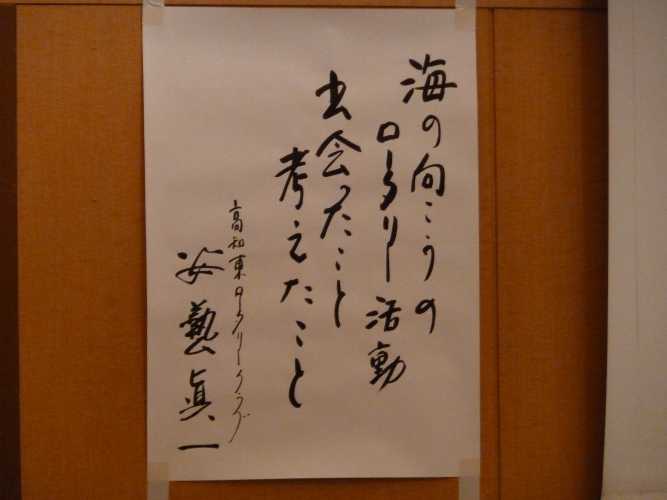 海の向こうの
ロータリー活動
出会ったこと
考えたこと
高知東ロータリークラブ
安藝眞一